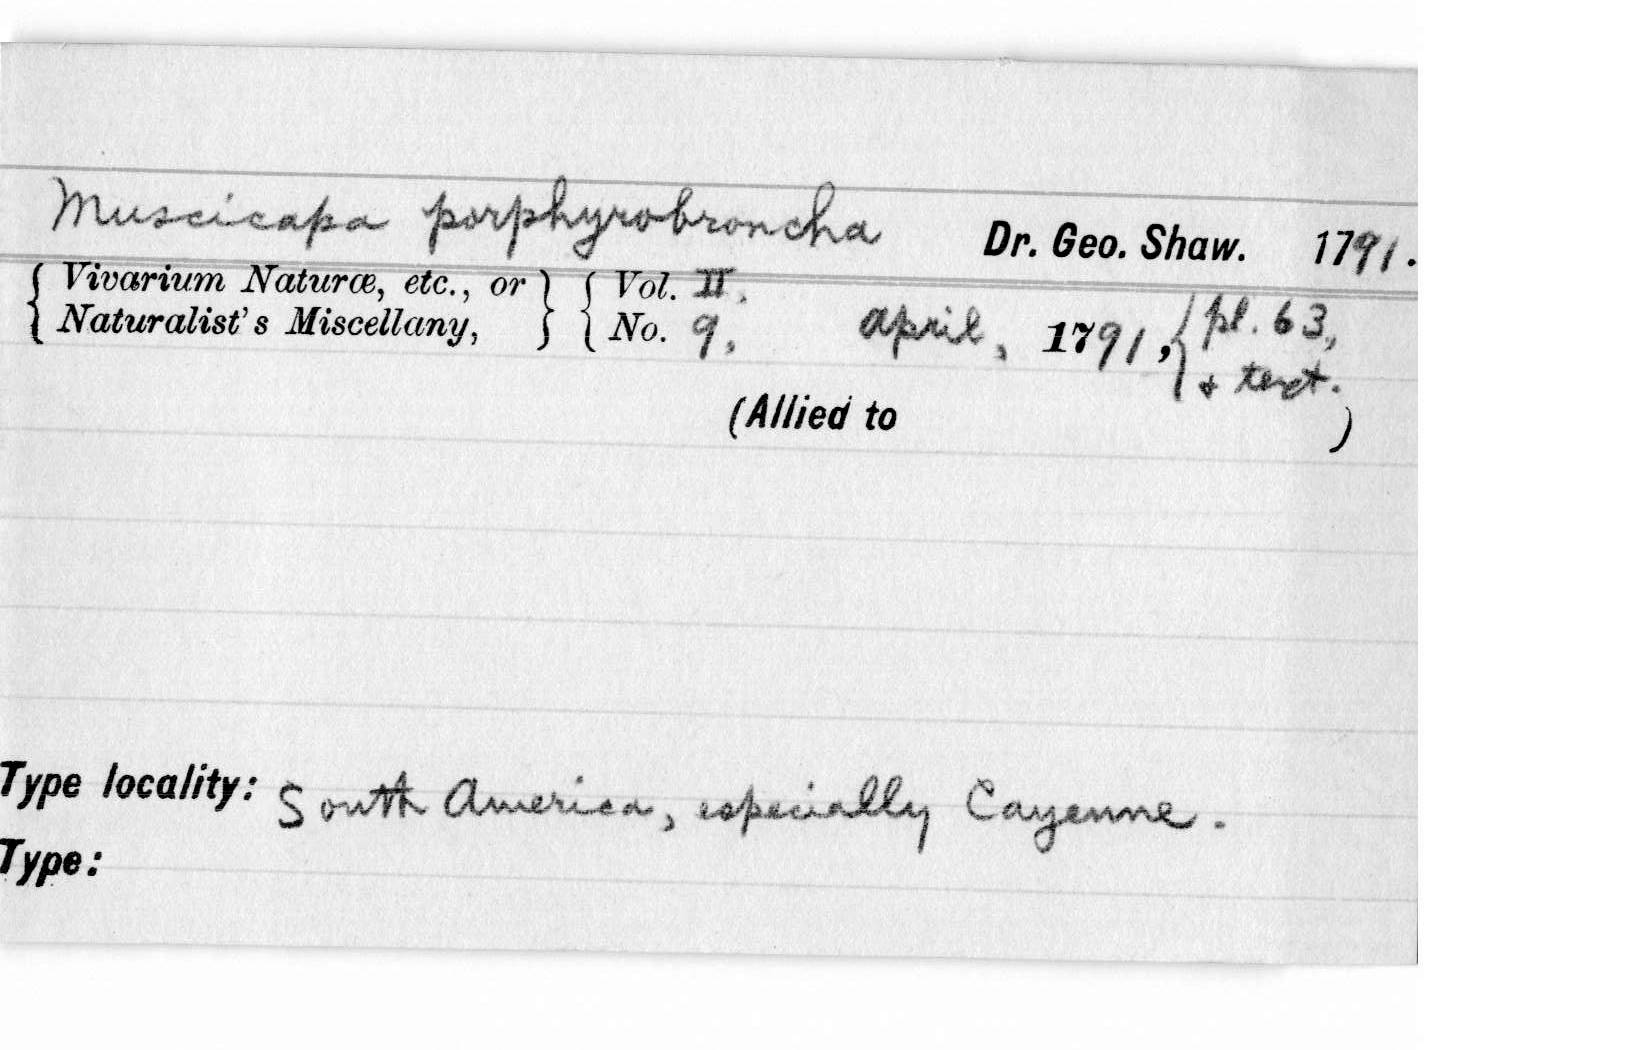 Muscicapa porphyrobroncha Dr. Geo. Shaw. 1791.
{ Vivarium Naturæ, etc., or } { Vol. II.
{ Naturalist's Miscellany, } { No. 9, April, 1791, { pl. 63,
& text.
(Allied to )
Type locality: South America, especially Cayenne.
Type: